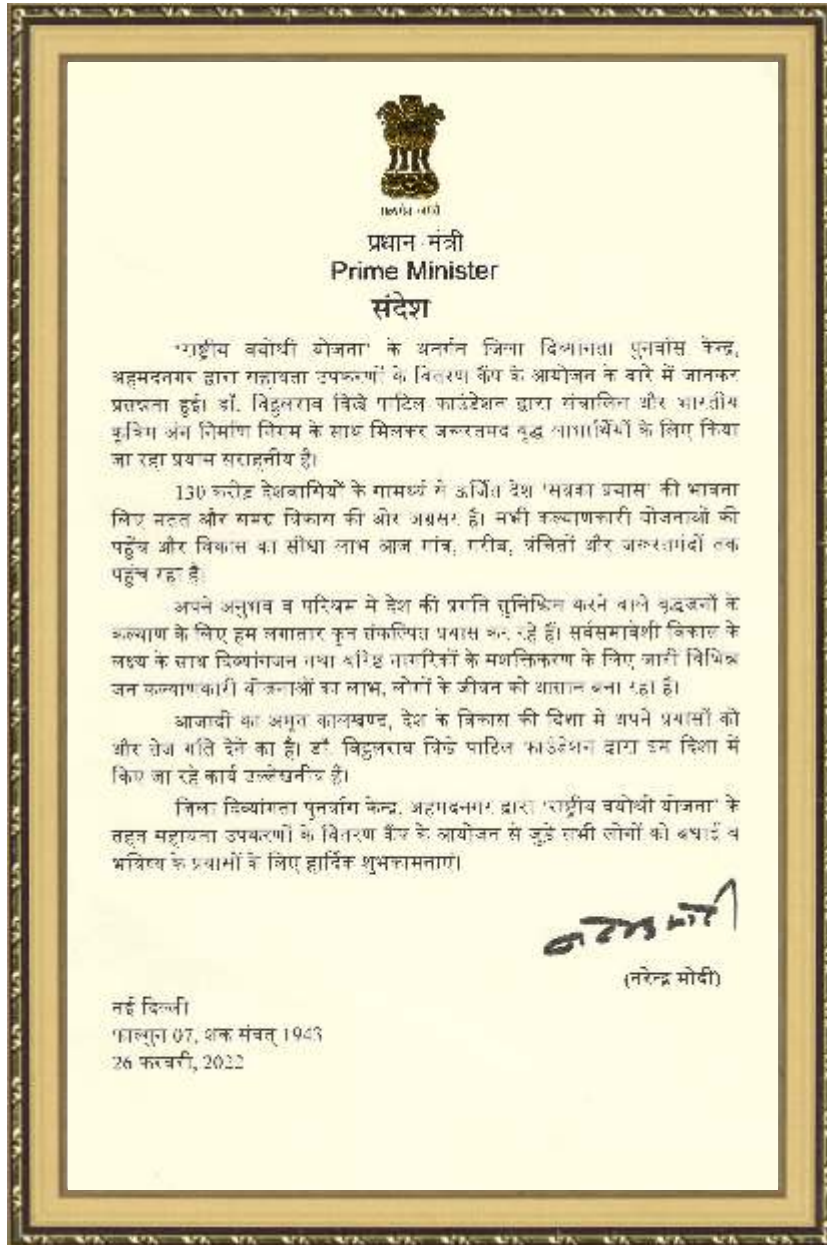 सत्यमेव जयते
प्रधान मंत्री
Prime Minister
संदेश
'राष्ट्रीय वयोश्री योजना' के अन्तर्गत जिला दिव्यांगता पुनर्वास केन्द्र,
अहमदनगर द्वारा सहायता उपकरणों के वितरण कैंप के आयोजन के बारे में जानकर
प्रसन्नता हुई। डॉ. विट्ठलराव विखे पाटिल फाउंडेशन द्वारा संचालित और भारतीय
कृत्रिम अंग निर्माण निगम के साथ मिलकर जरूरतमंद वृद्ध लाभार्थियों के लिए किया
जा रहा प्रयास सराहनीय है।
130 करोड़ देशवासियों के सामर्थ्य से ऊर्जित देश 'सबका प्रयास' की भावना
लिए सतत और समग्र विकास की ओर अग्रसर है। सभी कल्याणकारी योजनाओं की
पहुँच और विकास का सीधा लाभ आज गांव, गरीब, वंचितों और जरूरतमंदों तक
पहुंच रहा है।
अपने अनुभव व परिश्रम से देश की प्रगति सुनिश्चित करने वाले वृद्धजनों के
कल्याण के लिए हम लगातार कृत संकल्पित प्रयास कर रहे हैं। सर्वसमावेशी विकास के
लक्ष्य के साथ दिव्यांगजन तथा वरिष्ठ नागरिकों के सशक्तिकरण के लिए जारी विभिन्न
जन कल्याणकारी योजनाओं का लाभ, लोगों के जीवन को आसान बना रहा है।
आजादी का अमृत कालखण्ड, देश के विकास की दिशा में अपने प्रयासों को
और तेज गति देने का है। डॉ. विट्ठलराव विखे पाटिल फाउंडेशन द्वारा इस दिशा में
किए जा रहे कार्य उल्लेखनीय हैं।
जिला दिव्यांगता पुनर्वास केन्द्र, अहमदनगर द्वारा 'राष्ट्रीय वयोश्री योजना' के
तहत सहायता उपकरणों के वितरण कैंप के आयोजन से जुड़े सभी लोगों को बधाई व
भविष्य के प्रयासों के लिए हार्दिक शुभकामनाएं।
नरेन्द्र मोदी
(नरेन्द्र मोदी)
नई दिल्ली
फाल्गुन 07, शक संवत् 1943
26 फरवरी, 2022